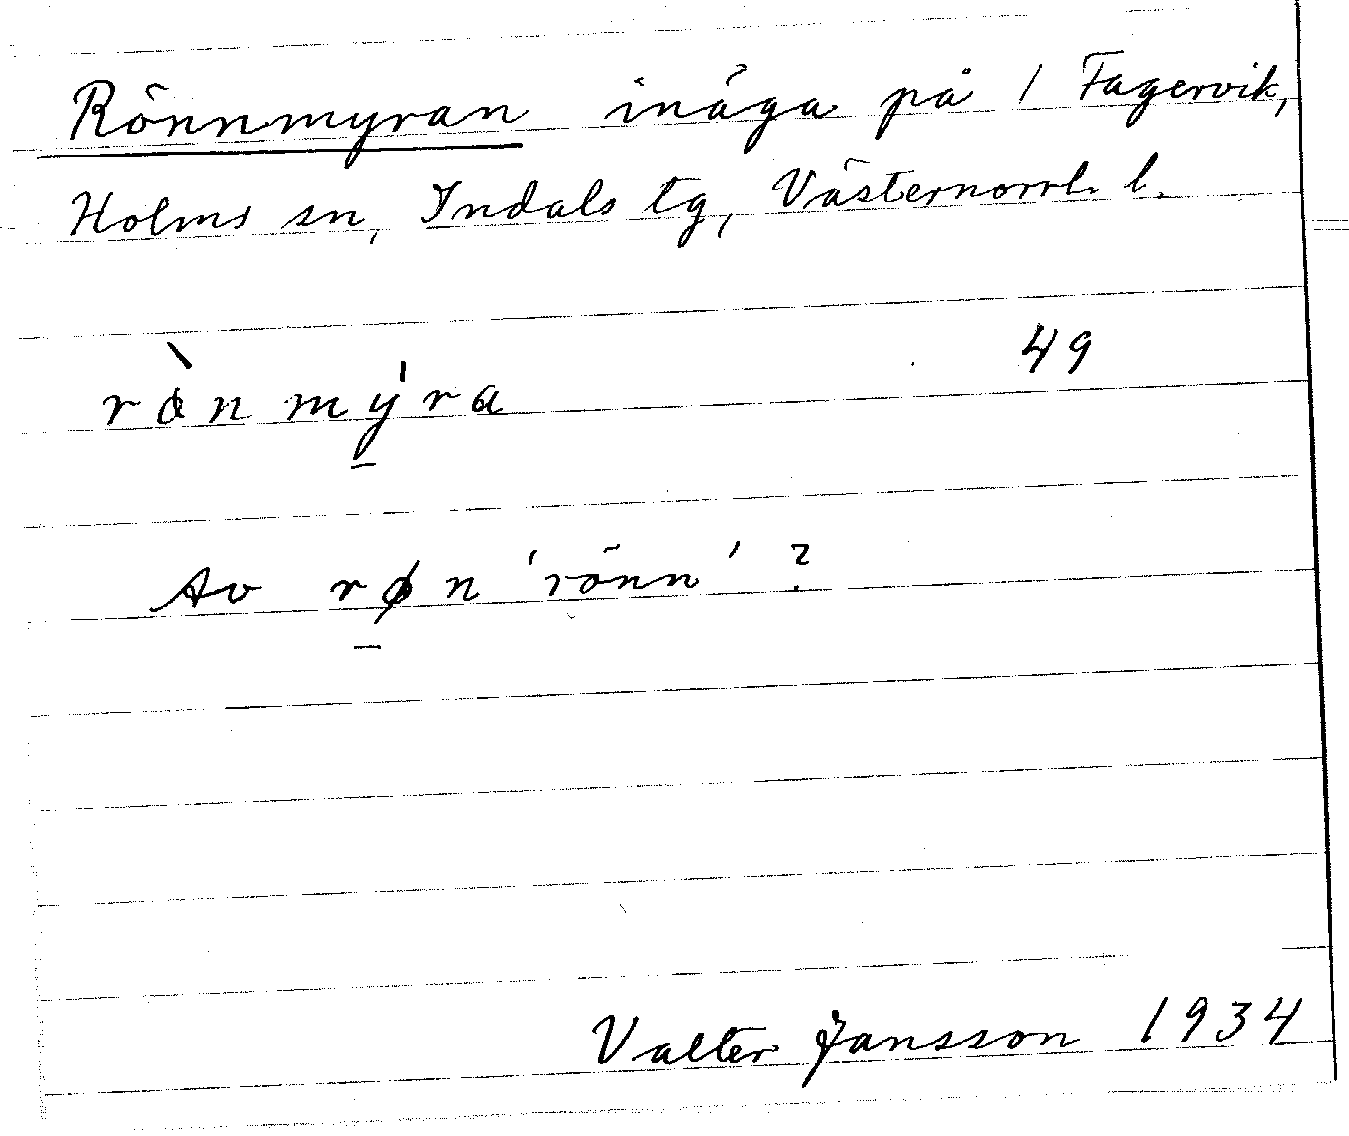 Rönnmyran inäga på 1 Fagervik,
Holms sn, Indals tg, Västernorrl. l.
49
rø̀nmýra
Av røn 'rönn' ?
Valter Jansson 1934